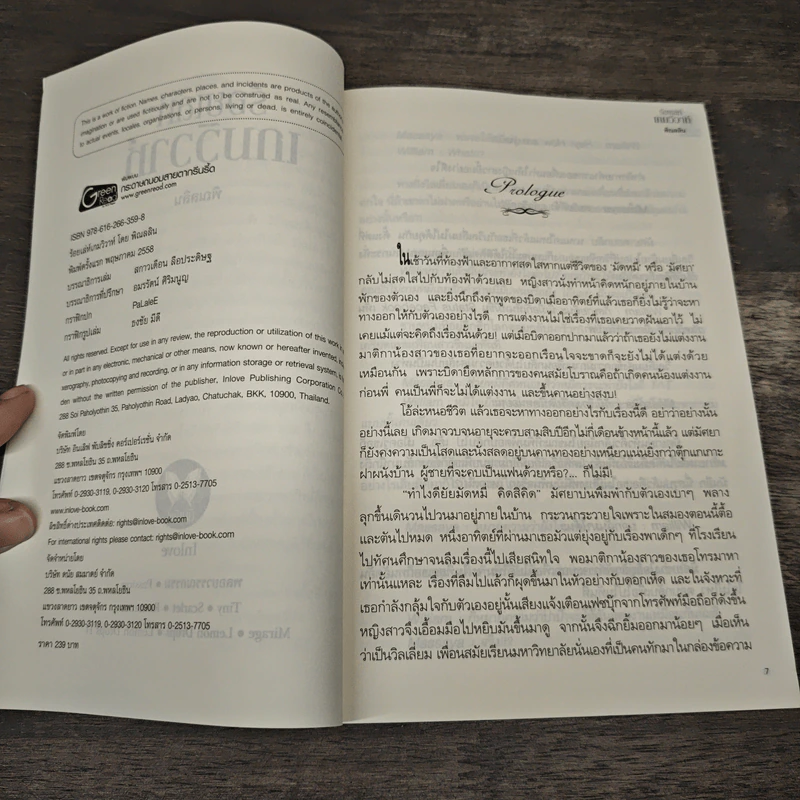 This is a work of fiction. Names, characters, places, and incidents are products of the
imagination or are used fictitiously and are not to be construed as real. Any
to actual events, locales, organizations, or persons, living or dead, is entirely
พิมพ์บน
กระดาษถนอมสายตากรีนรี้ด
www.greenread.com
Green
Read
ISBN 978-616-266-359-8
ร้อยเล่ห์เกมวิวาห์ โดย พิณลลิน
พิมพ์ครั้งแรก พฤษภาคม 2558
บรรณาธิการเล่ม สกาวเดือน ลือประดิษฐ
บรรณาธิการที่ปรึกษา อมรรัตน์ ศิริมนูญ
กราฟิกปก PaLaleE
กราฟิกรูปเล่ม ธงชัย มีดี
All rights reserved. Except for use in any review, the reproduction or utilization of this work
or in part in any electronic, mechanical or other means, now known or hereafter invented,
xerography, photocopying and recording, or in any information storage or retrieval system, is
den without the written permission of the publisher, Inlove Publishing Corporation
288 Soi Paholyothin 35, Paholyothin Road, Ladyao, Chatuchak, BKK, 10900, Thailand.
จัดพิมพ์โดย
บริษัท อินเลิฟ พับลิชชิ่ง คอร์ปอเรชั่น จำกัด
288 ซ.พหลโยธิน 35 ถ.พหลโยธิน
แขวงลาดยาว เขตจตุจักร กรุงเทพฯ 10900
โทรศัพท์ 0-2930-3119, 0-2930-3120 โทรสาร 0-2513-7705
www.inlove-book.com
ลิขสิทธิ์ต่างประเทศติดต่อ: rights@inlove-book.com
For international rights please contact: rights@inlove-book.com
จัดจำหน่ายโดย
บริษัท ดนัย สมมาตย์ จำกัด
288 ซ.พหลโยธิน 35 ถ.พหลโยธิน
แขวงลาดยาว เขตจตุจักร กรุงเทพฯ 10900
โทรศัพท์ 0-2930-3119, 0-2930-3120 โทรสาร 0-2513-7705
ราคา 239 บาท
พิณลลิน
Prologue
ในเช้าวันที่ท้องฟ้าและอากาศสดใสหากแต่ชีวิตของ ‘มัดหมี่’ หรือ ‘มัศยา’
กลับไม่สดใสไปกับท้องฟ้าด้วยเลย หญิงสาวนั่งทำหน้าคิดหนักอยู่ภายในบ้าน
พักของตัวเอง และยิ่งนึกถึงคำพูดของบิดาเมื่ออาทิตย์ที่แล้วเธอก็ยิ่งไม่รู้ว่าจะหา
ทางออกให้กับตัวเองอย่างไรดี การแต่งงานไม่ใช่เรื่องที่เธอเคยวาดฝันเอาไว้ ไม่
เคยแม้แต่จะคิดถึงเรื่องนั้นด้วย! แต่เมื่อบิดาออกปากมาแล้วว่าถ้าเธอยังไม่แต่งงาน
มาติกาน้องสาวของเธอที่อยากจะออกเรือนใจจะขาดก็จะยังไม่ได้แต่งด้วย
เหมือนกัน เพราะบิดายึดหลักการของคนสมัยโบราณคือถ้าเกิดคนน้องแต่งงาน
ก่อนพี่ คนเป็นพี่ก็จะไม่ได้แต่งงาน และขึ้นคานอย่างสงบ!
โอ้ละหนอชีวิต แล้วเธอจะหาทางออกอย่างไรกับเรื่องนี้ดี อย่าว่าอย่างนั้น
อย่างนี้เลย เกิดมาจวบจนอายุจะครบสามสิบปีอีกไม่กี่เดือนข้างหน้านี้แล้ว แต่มัศยา
ก็ยังคงความเป็นโสดและนั่งสลดอยู่บนคานทองอย่างเหนียวแน่นยิ่งกว่าตุ๊กแกเกาะ
ฝาผนังบ้าน ผู้ชายที่จะคบเป็นแฟนด้วยหรือ?... ก็ไม่มี!
“ทำไงดียัยมัดหมี่ คิดสิคิด” มัศยาบ่นพึมพำกับตัวเองเบาๆ พลาง
ลุกขึ้นเดินวนไปวนมาอยู่ภายในบ้าน กระวนกระวายใจเพราะในสมองตอนนี้ตื้อ
และตันไปหมด หนึ่งอาทิตย์ที่ผ่านมาเธอมัวแต่ยุ่งอยู่กับเรื่องพาเด็กๆ ที่โรงเรียน
ไปทัศนศึกษาจนลืมเรื่องนี้ไปเสียสนิทใจ พอมาติกาน้องสาวของเธอโทรมาหา
เท่านั้นแหละ เรื่องที่ลืมไปแล้วก็ผุดขึ้นมาในหัวอย่างกับดอกเห็ด และในจังหวะที่
เธอกำลังกลุ้มใจกับตัวเองอยู่นั้นเสียงแจ้งเตือนเฟซบุ๊กจากโทรศัพท์มือถือก็ดังขึ้น
หญิงสาวจึงเอื้อมมือไปหยิบมันขึ้นมาดู จากนั้นจึงฉีกยิ้มออกมาน้อยๆ เมื่อเห็น
ว่าเป็นวิลเลี่ยม เพื่อนสมัยเรียนมหาวิทยาลัยนั่นเองที่เป็นคนทักมาในกล่องข้อความ
7